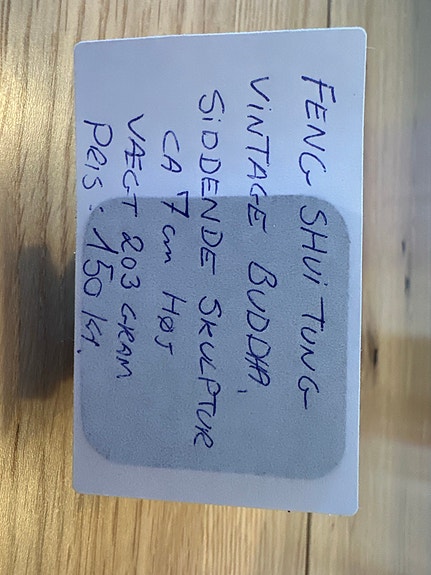 FENG SHUI TUNG
VINTAGE BUDDHA,
SIDDENDE SKULPTUR
CA 7 cm HØJ
VÆGT 203 GRAM
PRIS: 150 kr.